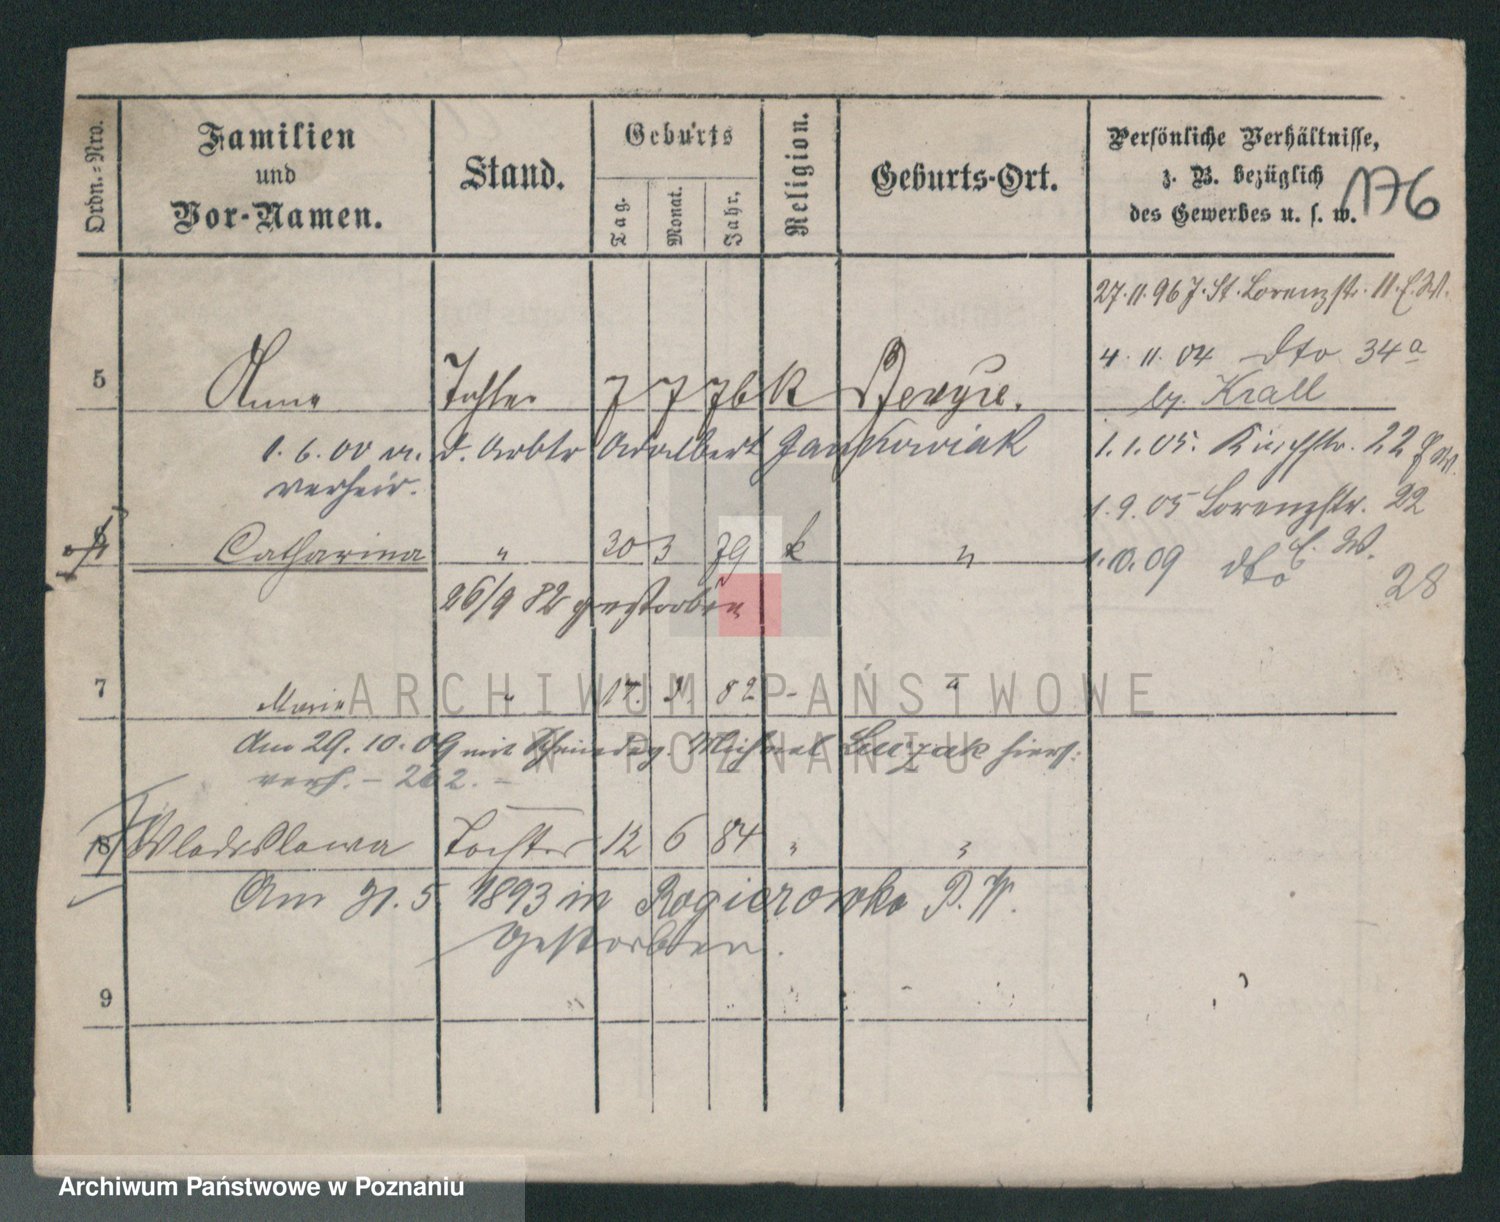 Ordn.-Nro.
Familien
und
Vor-Namen.
Stand.
Geburts
Tag.
Monat.
Jahr.
Religion.
Geburts-Ort.
Persönliche Verhältnisse,
z. B. bezüglich
des Gewerbes u. s. w.
176
27.11.96 J. St. Lorenzstr. 11. E.W.
4.11.04 dto 34a
bz. Krall
5 Anna Tochter 7 7 76 K
1.6.00 m. d. Arbtr Adalbert Jankowiak
verheir.
1.1.05. Kirchstr. 22
1.9.05 Lorenzstr. 22
E. W.
09 dto 28
6 Catharina " 30 3 79 k "
26/9 82 gestorben
7 Marie " 17. 82 - "
Am 29. 10. 09 mit Michael hiers.
verh. - 262. -
8 Wladislawa Tochter 12 6 84 " "
Am 5. 1893 in Rogierowko P. W.
gestorben.
9
ARCHIWUM PAŃSTWOWE
W POZNANIU
Archiwum Państwowe w Poznaniu